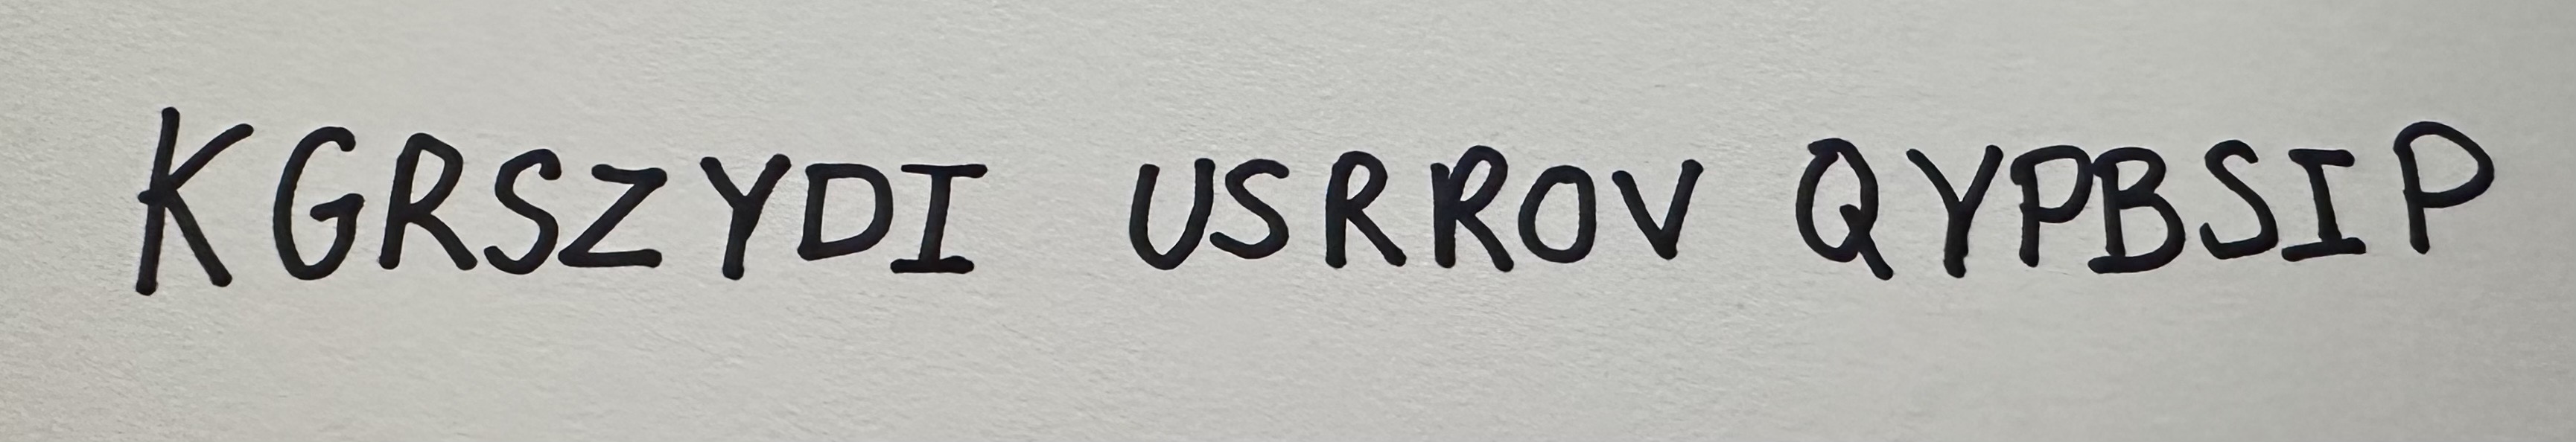 KGRSZYDI USRROV QYPBSIP